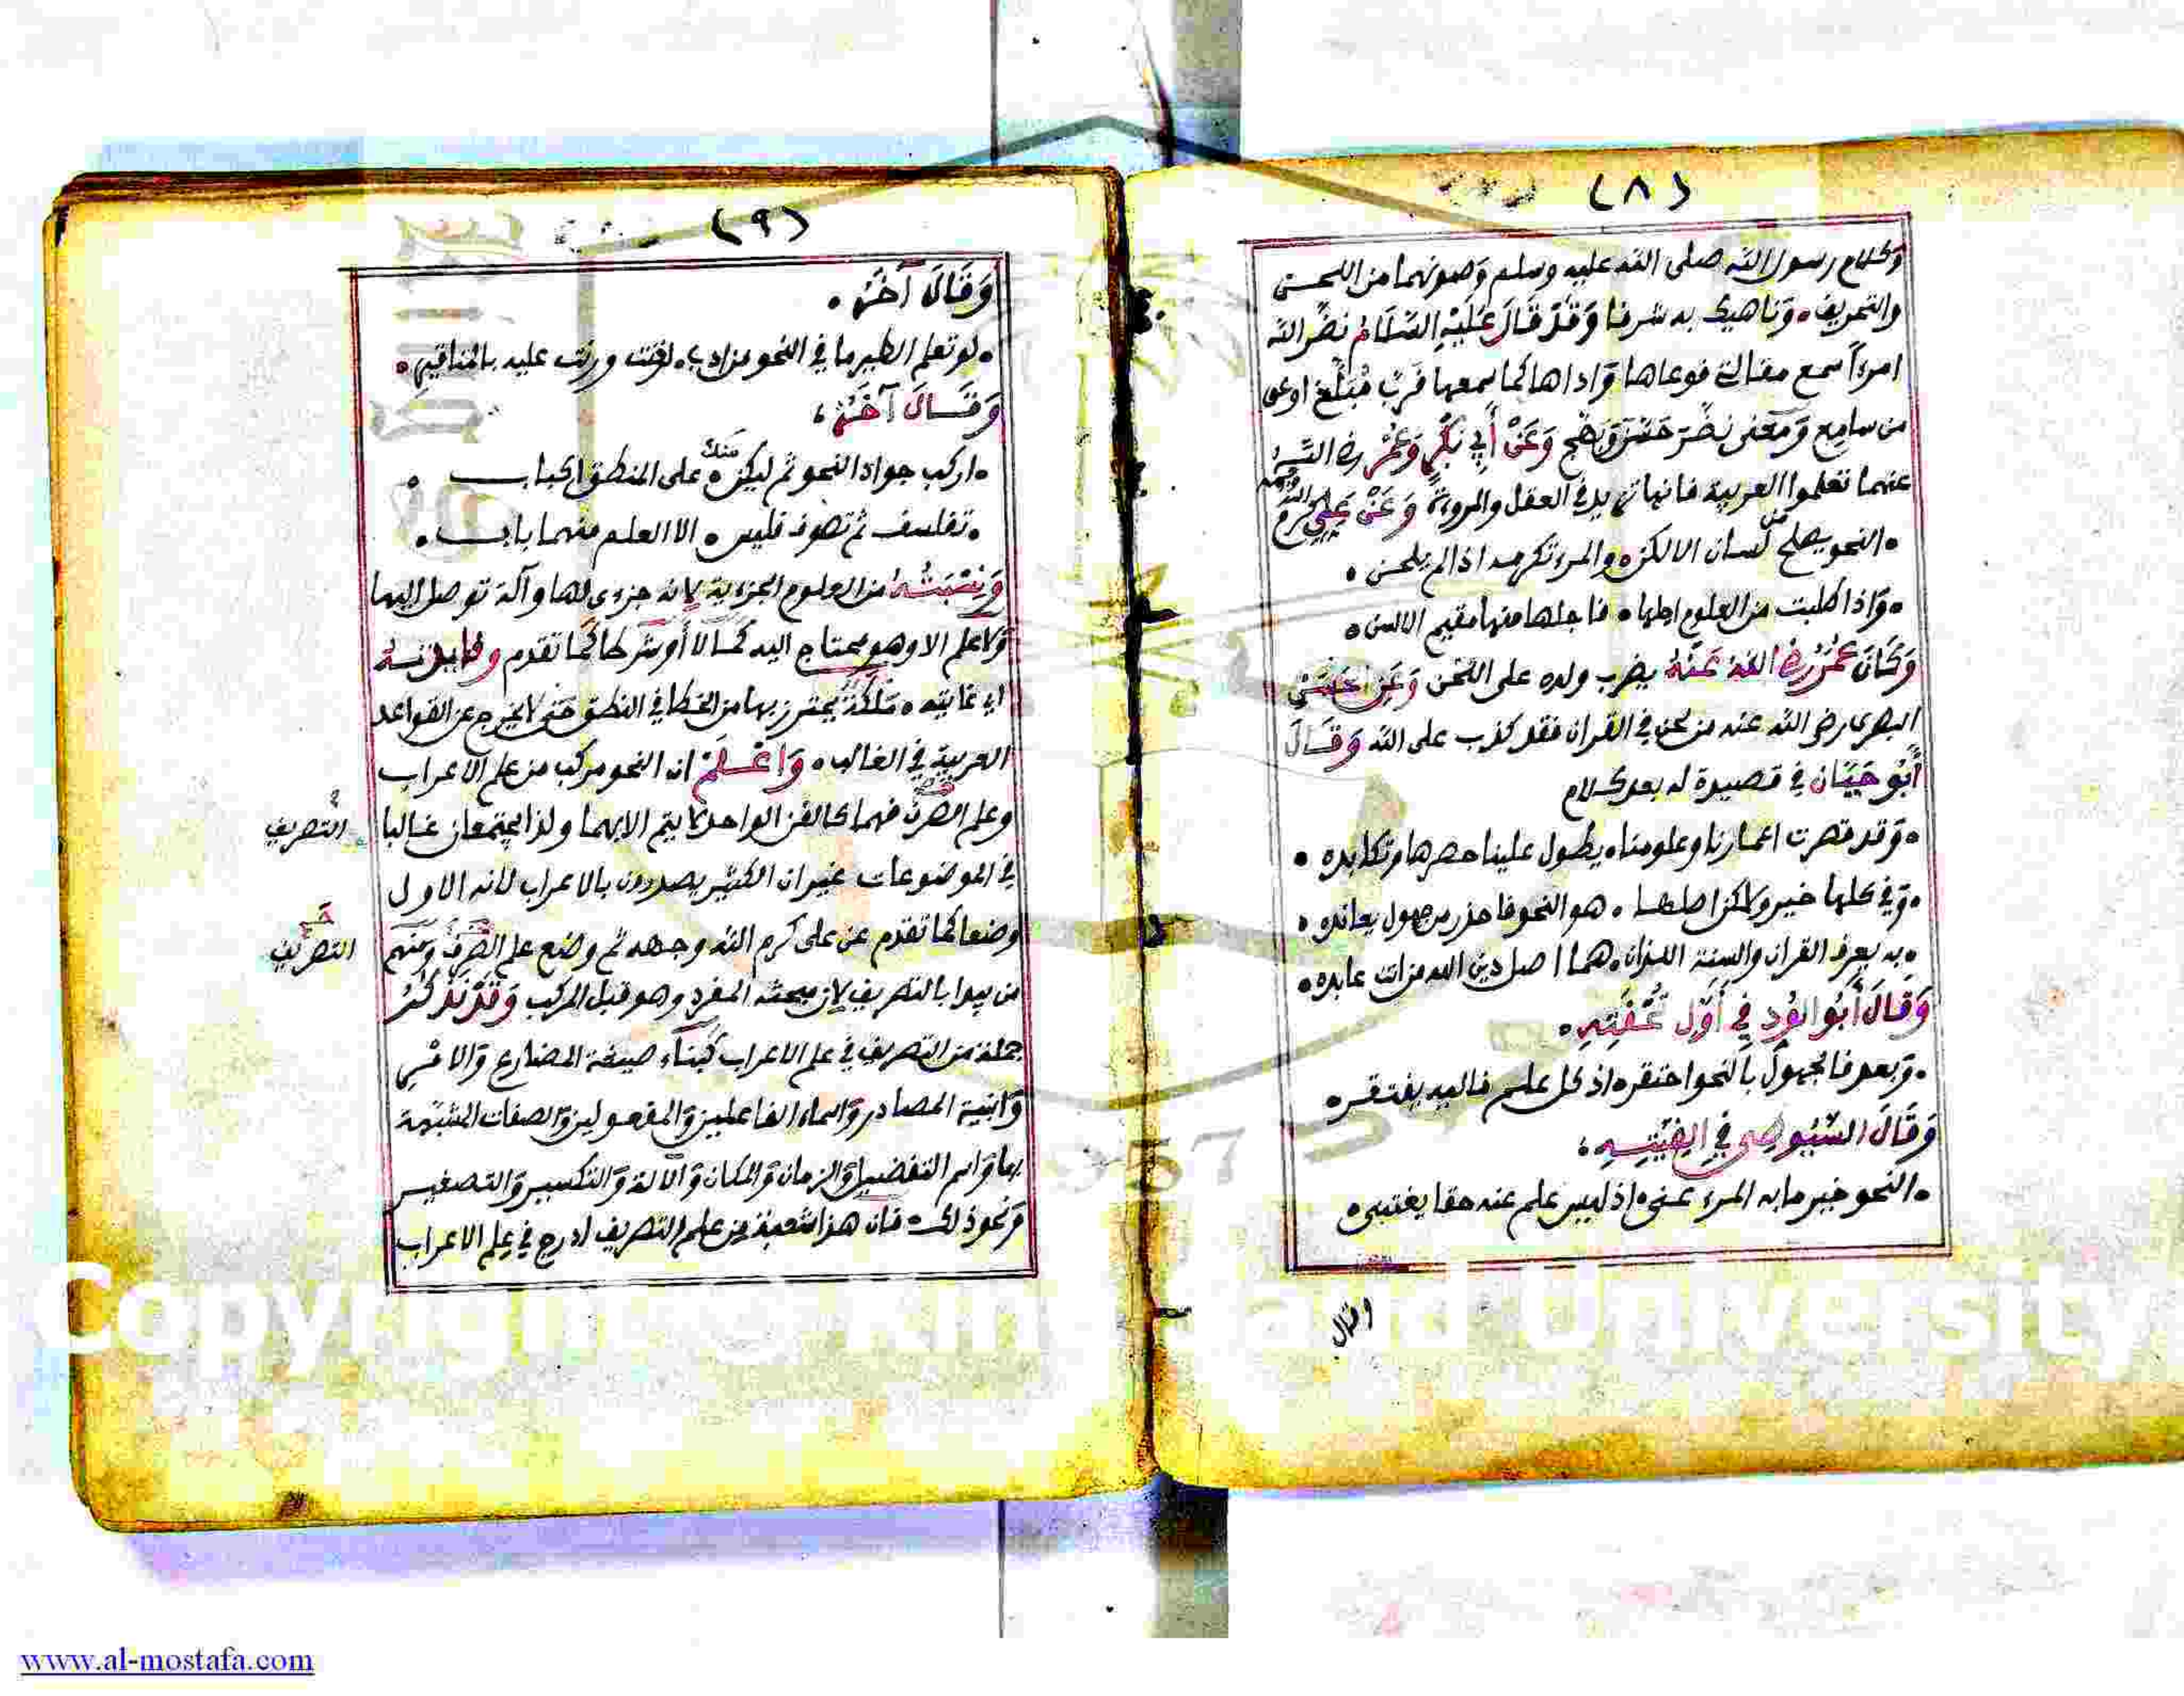 (٨)
وكلام رسول الله صلى الله عليه وسلم وصونهما من اللحن
والتحريف • وناهيك به شرفا وَقَدْ قَالَ عَلَيْهِ السَّلَامُ نضر الله
امرءاً سمع مقالتي فوعاها وَاداها كما سمعها فربّ مُبَلَّغ اوعى
من سامع وَمعنى نضّر حسّن وَعَنْ أَبِي بَكْرٍ وَعُمَرَ رضي الله
عنهما تعلموا العربية فانها تزيد في العقل والمروءة وَعَنْ عَلِيٍّ كرم الله وجهه
• النحو يصلح من لسان الالكن • والمرء تكرمه اذا لم يلحن •
• وَاذا طلبت من العلوم اجلها • فاجلها منها مقيم الالسن •
وَكَانَ عُمَرُ رضي اللهُ عَنْهُ يضرب ولده على اللحن وَعَنِ الحَسَنِ
البصرى رضي الله عنه من لحن في القران فقد كذب على الله وَقَالَ
أَبُو حَيَّان في قصيدة له بعد كلام
• وَقد قصرت اعمارنا وعلومنا • يطول علينا حصرها ونكابده •
• وَفي كلها خير ولكن اصلها • هو النحو فاحذر من جهول يعانده •
• به يعرف القران والسنة اللذان • هما اصل دين الله من انت عابده •
وَقَالَ أَبُو الوَرْدِ فِي أَوَّلِ تُحْفَتِهِ •
• وَبعد فالجهول بالنحو احتقر • اذ كل علم فاليه يفتقر •
وَقَالَ السُّيُوطِي فِي الفِيَّتِهِ ،
• النحو خير ما به المرء عني • اذ ليس علم عنه حقا يغتنى •
وقال
(٩)
وَقَالَ آخَرُ •
• لو تعلم الطير ما في النحو من ادب • لغنت ورنت عليه بالمناقير •
وَقَالَ آخَرُ ،
• اركب جواد النحو ثم ليكن • منك على المنطق اكباب •
• تفلسف ثم تصوف فليس • الا العلم منهما باب •
وَنِسْبَتُهُ من العلوم الجزءية لانه جزءى لها وآلة توصل اليها
وَلا علم الا وهو محتاج اليه كمالا أو شرطا كما تقدم وفايدته
اي غايته • مَلَكَةٌ يحترز بها من الخطا في النطق حتى لا يخرج عن القواعد
العربية في الغالب • وَاعْلَمْ ان النحو مركب من علم الاعراب
وعلم الصرف فهما كالفن الواحد لا يتم الا بهما ولذا يجتمعان غالبا
التصريف
في الموضوعات غير ان الكثير يصدرون بالاعراب لانه الاول
وضعا كما تقدم عن على كرم الله وجهه ثم وضع علم الصرف وَمنهم
التصريف
من يبدا بالتصريف لان مبحثه المفرد وهو قبل المركب وَقَدْ نَذْكُرُ
جملة من التصريف في علم الاعراب كبناء صيغة المضارع وَالامر
وَابنية المصادر وَاسماء الفاعلين وَالمفعولين وَالصفات المشبهة
بها وَاسم التفضيل وَالزمان وَالمكان وَالالة وَالتكسير وَالتصغير
وَنحو ذلك • فان هذا شعبة من علم التصريف ادرج في علم الاعراب
Copyright © King Saud University
1957
www.al-mostafa.com